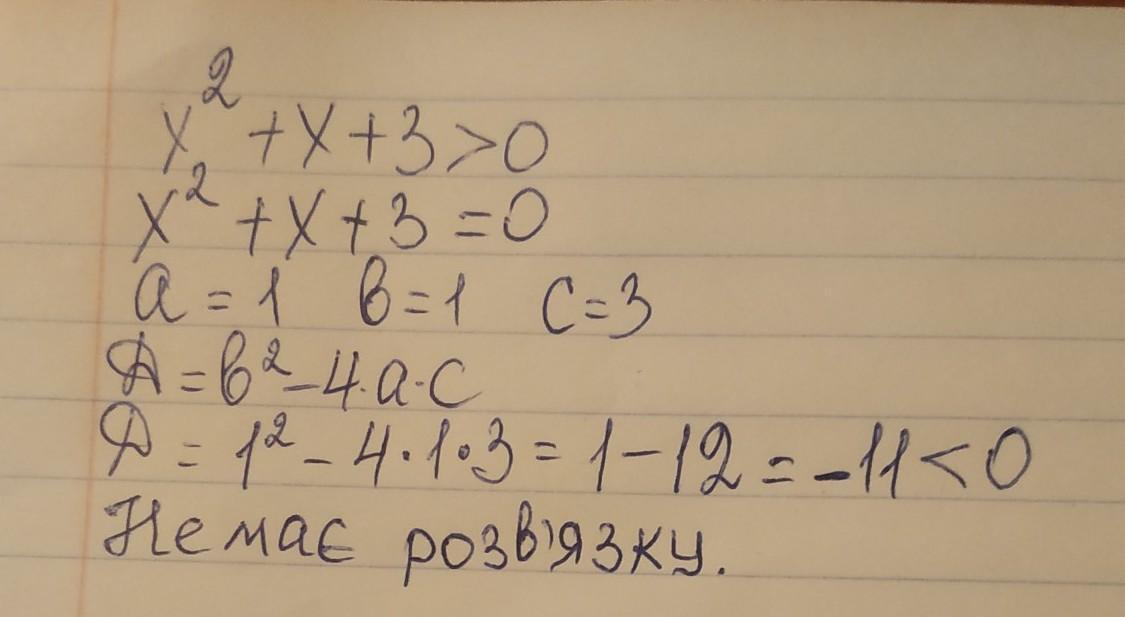 x² + x + 3 > 0
x² + x + 3 = 0
a = 1 в = 1 c = 3
Д = в² - 4·a·c
Д = 1² - 4·1·3 = 1 - 12 = -11 < 0
Немає розв'язку.